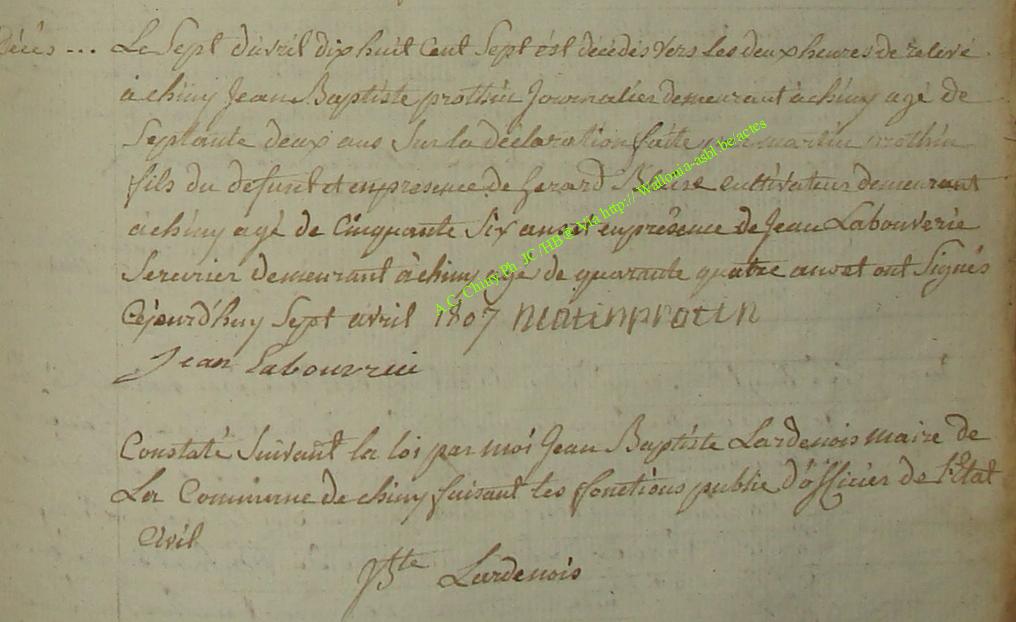 Décès ... Le Sept d'avril dix huit Cent Sept est décédés vers les deux heures de relevé
à chiny Jean Baptiste prothin Journalier demeurant à chiny agé de
Septante deux ans Sur la déclaration faite par martin prothin
fils du defunt et en presence de Gerard cultivateur demeurant
à chiny agé de Cinquante Six ans et en présence de Jean Labouverie
Serurier demeurant à chiny agé de quarante quatre ans et ont Signés
Cejourd'huy Sept avril 1807 matinprotin
Jean Labouvrie
Constaté Suivant la loi par moi Jean Baptiste Lardenois maire de
La Commune de chiny faisant les fonctions public d'officier de l'Etat
Civil
JBte Lardenois
A.C. Chiny Ph. JC /HB © Via http://Wallonia-asbl.be/actes